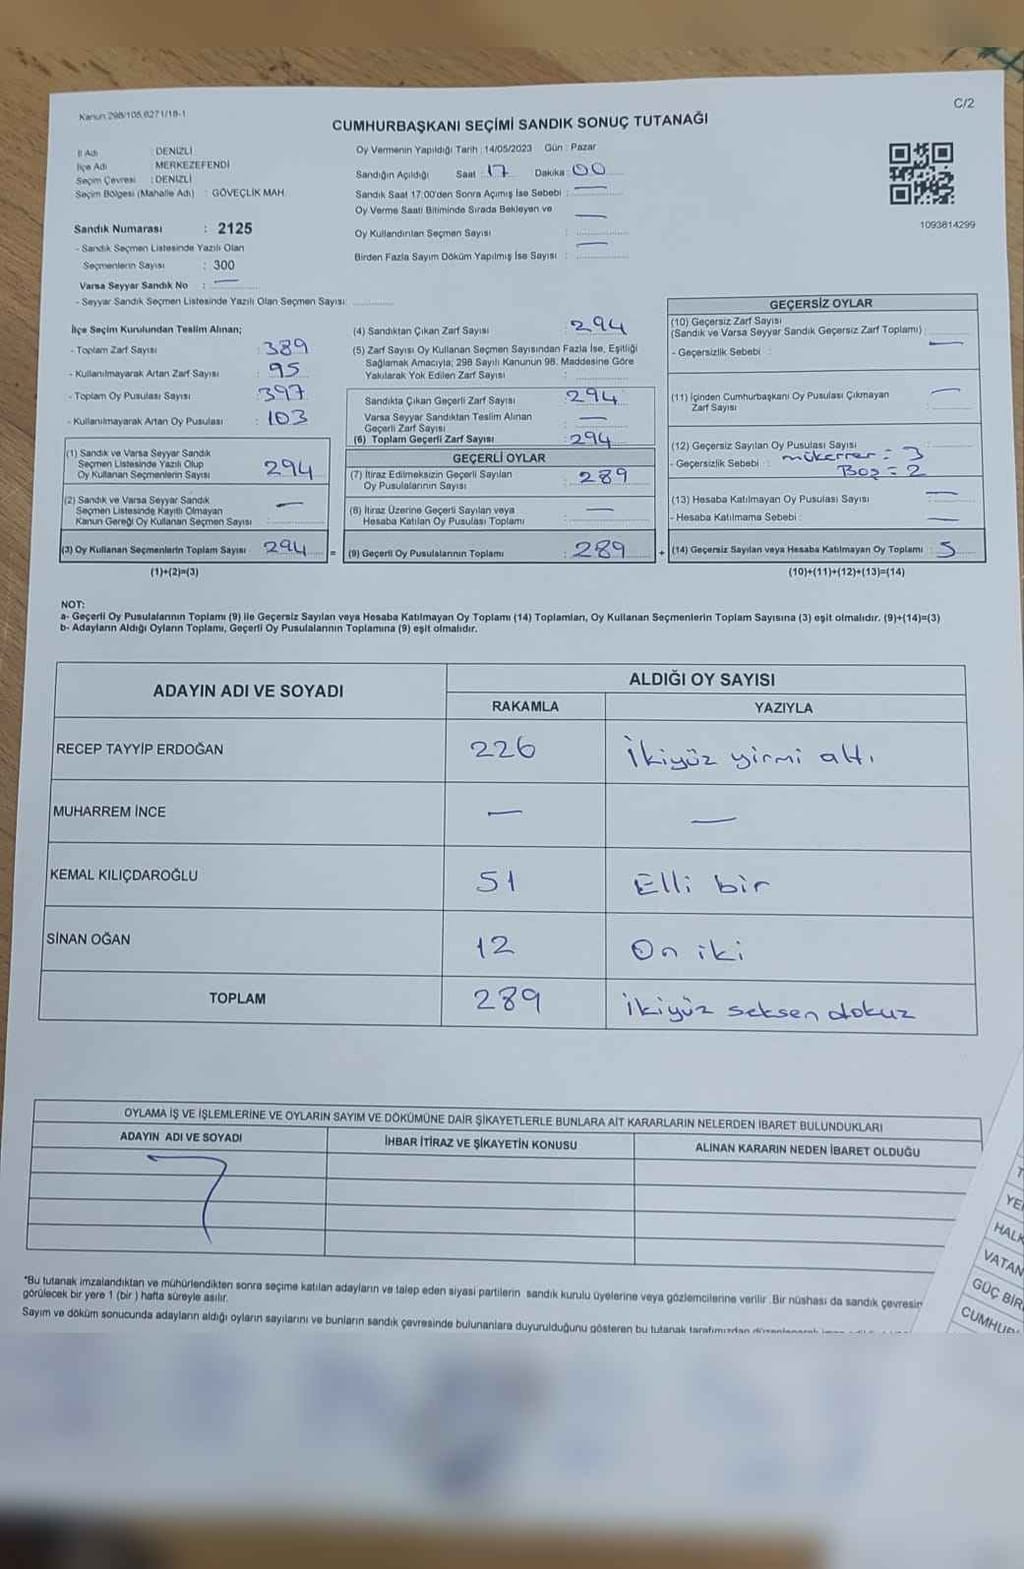 Kanun 298/105,6271/18-1
C/2
CUMHURBAŞKANI SEÇİMİ SANDIK SONUÇ TUTANAĞI
İl Adı : DENİZLİ
İlçe Adı : MERKEZEFENDİ
Seçim Çevresi : DENİZLİ
Seçim Bölgesi (Mahalle Adı) : GÖVEÇLİK MAH.
Sandık Numarası : 2125
- Sandık Seçmen Listesinde Yazılı Olan
Seçmenlerin Sayısı : 300
Varsa Seyyar Sandık No : —
- Seyyar Sandık Seçmen Listesinde Yazılı Olan Seçmen Sayısı:
Oy Vermenin Yapıldığı Tarih : 14/05/2023 Gün : Pazar
Sandığın Açıldığı Saat : 17 Dakika : 00
Sandık Saat 17:00'den Sonra Açımış İse Sebebi : —
Oy Verme Saati Bitiminde Sırada Bekleyen ve
Oy Kullandırılan Seçmen Sayısı : —
Birden Fazla Sayım Döküm Yapılmış İse Sayısı : —
1093814299
İlçe Seçim Kurulundan Teslim Alınan;
- Toplam Zarf Sayısı : 389
- Kullanılmayarak Artan Zarf Sayısı : 95
- Toplam Oy Pusulası Sayısı : 397
- Kullanılmayarak Artan Oy Pusulası : 103
(1) Sandık ve Varsa Seyyar Sandık
Seçmen Listesinde Yazılı Olup
Oy Kullanan Seçmenlerin Sayısı 294
(2) Sandık ve Varsa Seyyar Sandık
Seçmen Listesinde Kayıtlı Olmayan
Kanun Gereği Oy Kullanan Seçmen Sayısı : —
(3) Oy Kullanan Seçmenlerin Toplam Sayısı : 294 =
(1)+(2)=(3)
(4) Sandıktan Çıkan Zarf Sayısı : 294
(5) Zarf Sayısı Oy Kullanan Seçmen Sayısından Fazla İse, Eşitliği
Sağlamak Amacıyla; 298 Sayılı Kanunun 98. Maddesine Göre
Yakılarak Yok Edilen Zarf Sayısı :
Sandıkta Çıkan Geçerli Zarf Sayısı : 294
Varsa Seyyar Sandıktan Teslim Alınan
Geçerli Zarf Sayısı : —
(6) Toplam Geçerli Zarf Sayısı : 294
GEÇERLİ OYLAR
(7) İtiraz Edilmeksizin Geçerli Sayılan
Oy Pusulalarının Sayısı : 289
(8) İtiraz Üzerine Geçerli Sayılan veya
Hesaba Katılan Oy Pusulası Toplamı : —
(9) Geçerli Oy Pusulalarının Toplamı : 289 +
GEÇERSİZ OYLAR
(10) Geçersiz Zarf Sayısı
(Sandık ve Varsa Seyyar Sandık Geçersiz Zarf Toplamı) : —
- Geçersizlik Sebebi :
(11) İçinden Cumhurbaşkanı Oy Pusulası Çıkmayan
Zarf Sayısı : —
(12) Geçersiz Sayılan Oy Pusulası Sayısı :
- Geçersizlik Sebebi : mükerrer = 3
Boş = 2
(13) Hesaba Katılmayan Oy Pusulası Sayısı : —
- Hesaba Katılmama Sebebi : —
(14) Geçersiz Sayılan veya Hesaba Katılmayan Oy Toplamı : 5
(10)+(11)+(12)+(13)=(14)
NOT:
a- Geçerli Oy Pusulalarının Toplamı (9) ile Geçersiz Sayılan veya Hesaba Katılmayan Oy Toplamı (14) Toplamları, Oy Kullanan Seçmenlerin Toplam Sayısına (3) eşit olmalıdır. (9)+(14)=(3)
b- Adayların Aldığı Oyların Toplamı, Geçerli Oy Pusulalarının Toplamına (9) eşit olmalıdır.
ADAYIN ADI VE SOYADI
ALDIĞI OY SAYISI
RAKAMLA YAZIYLA
RECEP TAYYİP ERDOĞAN 226 İkiyüz yirmi altı
MUHARREM İNCE — —
KEMAL KILIÇDAROĞLU 51 Elli bir
SİNAN OĞAN 12 On iki
TOPLAM 289 İkiyüz seksen dokuz
OYLAMA İŞ VE İŞLEMLERİNE VE OYLARIN SAYIM VE DÖKÜMÜNE DAİR ŞİKAYETLERLE BUNLARA AİT KARARLARIN NELERDEN İBARET BULUNDUKLARI
ADAYIN ADI VE SOYADI İHBAR İTİRAZ VE ŞİKAYETİN KONUSU ALINAN KARARIN NEDEN İBARET OLDUĞU
*Bu tutanak imzalandıktan ve mühürlendikten sonra seçime katılan adayların ve talep eden siyasi partilerin sandık kurulu üyelerine veya gözlemcilerine verilir. Bir nüshası da sandık çevresin
görülecek bir yere 1 (bir) hafta süreyle asılır.
Sayım ve döküm sonucunda adayların aldığı oyların sayılarını ve bunların sandık çevresinde bulunanlara duyurulduğunu gösteren bu tutanak tarafımızdan
YE
HALK
VATAN
GÜÇ BİR
CUMHUR